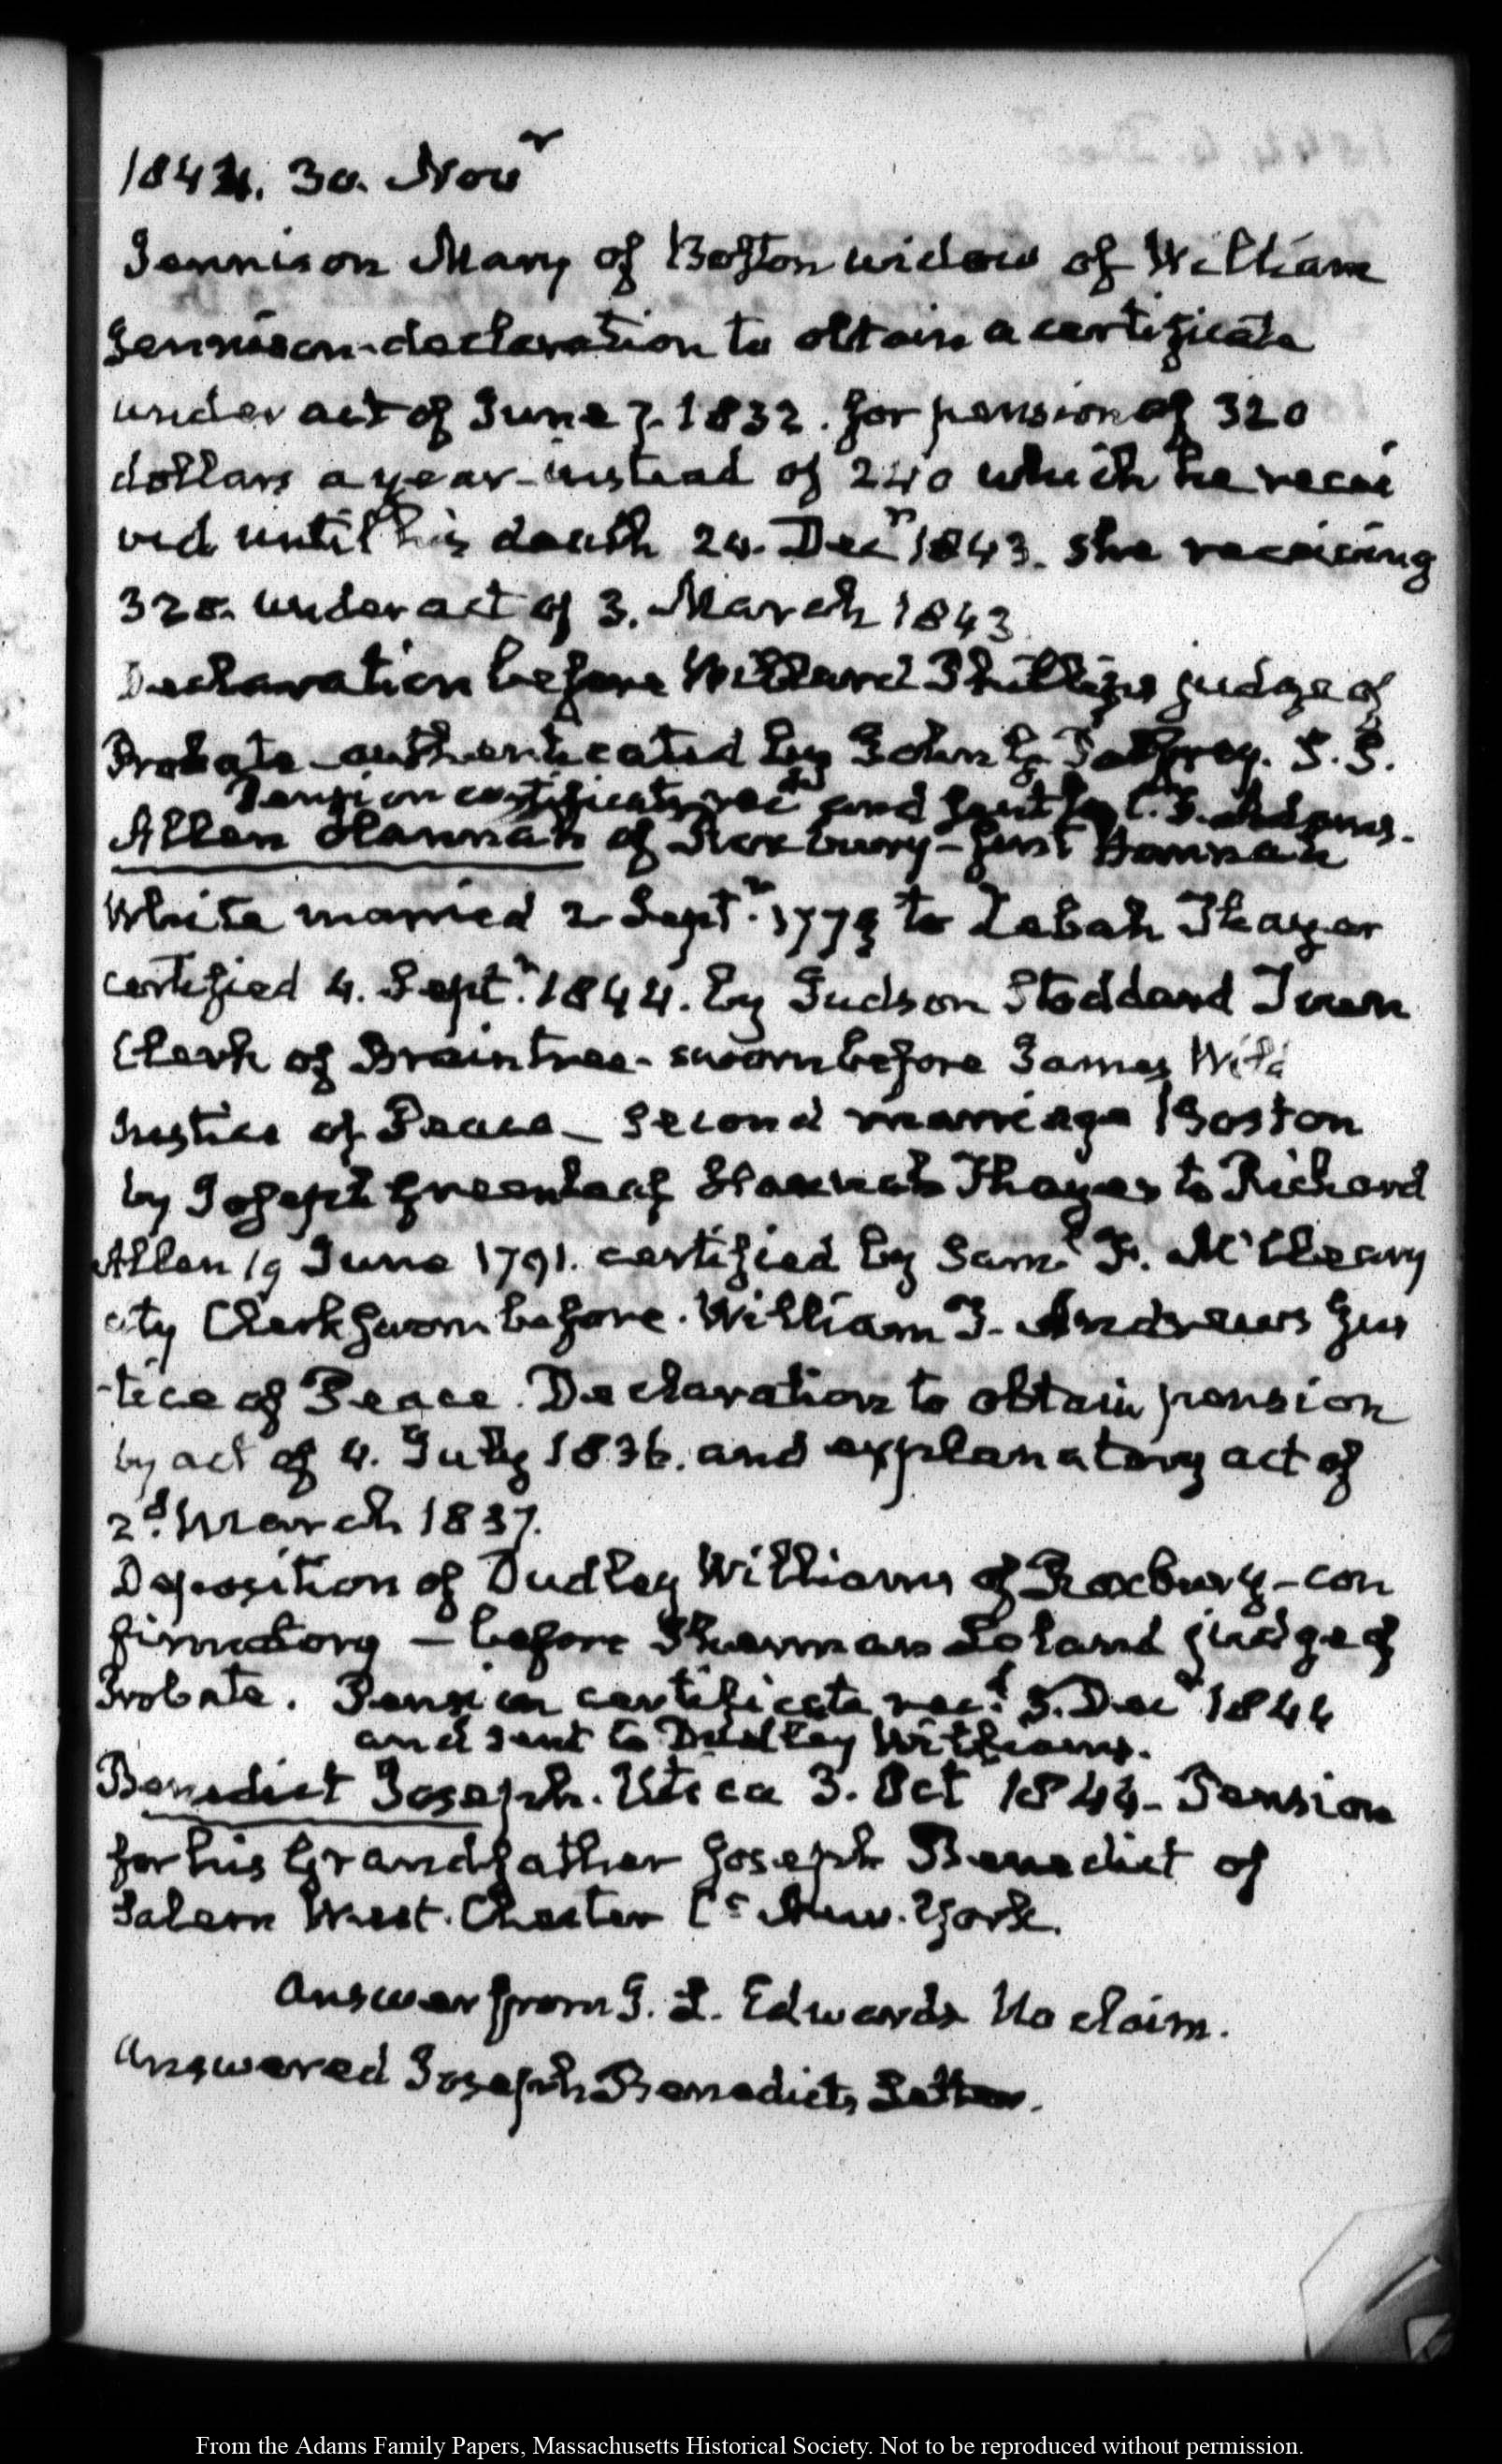 1844. 30. Novr
Jennison Mary of Boston widow of William
Jennison - declaration to obtain a certificate
under act of June 7. 1832. for pension of 320
dollars a year - instead of 240 which he recei
ved until his death 24. Decr 1843. she receiving
320. under act of 3. March 1843
Declaration before Willard Phillips judge of
Probate - authenticated by John G. Palfrey. S. S.
Pension certificate recd and sent to C. F. Adams.
Allen Hannah of Roxbury - first Hannah
White married 2 Septr. 1779 to Zebah Thayer
certified 4. Septr. 1844. by Judson Stoddard Town
Clerk of Braintree - sworn before James
Justice of Peace - Second marriage Boston
by Joseph Greenleaf Hannah Thayer to Richard
Allen 19 June 1791. certified by Saml F. McCleary
City Clerk sworn before. William T. Andrews Jus
-tice of Peace. Declaration to obtain pension
by act of 4. July 1836. and explanatory act of
2d. March 1837.
Deposition of Dudley Williams of Roxbury - con
firmatory - before Sherman Leland judge of
Probate. Pension certificate recd. 5. Decr 1844
and sent to Dudley Williams.
Benedict Joseph. Utica 3. Oct 1844 - Pension
for his Grandfather Joseph Benedict of
Salem West. Chester Co New. York.
Answer from J. L. Edwards No claim.
Answered Joseph Benedict's Letter.
From the Adams Family Papers, Massachusetts Historical Society. Not to be reproduced without permission.